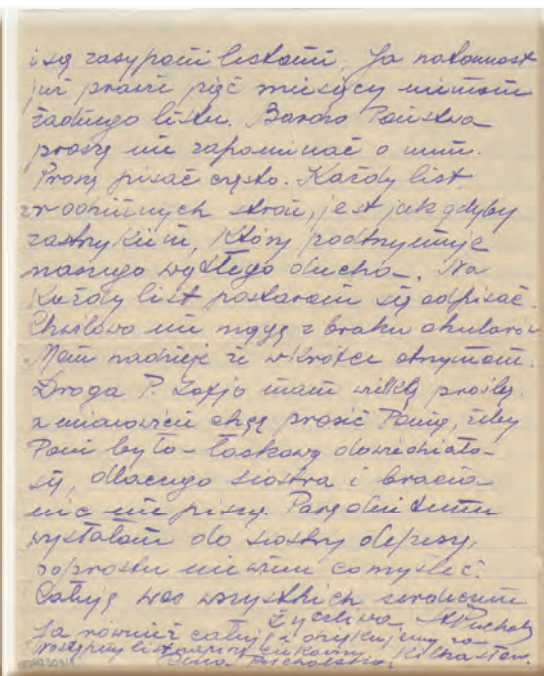 i są zasypani listami. Ja natomiast
już prawie pięć miesięcy nie mam
żadnego listu. Bardzo Państwa
proszę nie zapominać o mnie.
Proszę pisać często. Każdy list
z rodzinnych stron, jest jak gdyby
zastrzykiem, który podtrzymuje
naszego wątłego ducha. Na
każdy list postaram się odpisać.
Chwilowo nie mogę z braku okularów.
Mam nadzieję że wkrótce otrzymam.
Droga P. Zofjo mam wielką prośbę.
a mianowicie chcę prosić Panią, żeby
Pani była łaskawą dowiedziała
się, dlaczego siostra i bracia
nic nie piszą. Parę dni temu
wysłałam do siostry depeszę,
poprostu nie wiem co myśleć.
Całuję was wszystkich serdecznie
Życzliwa
Ja również całuję i dziękujemy za
list